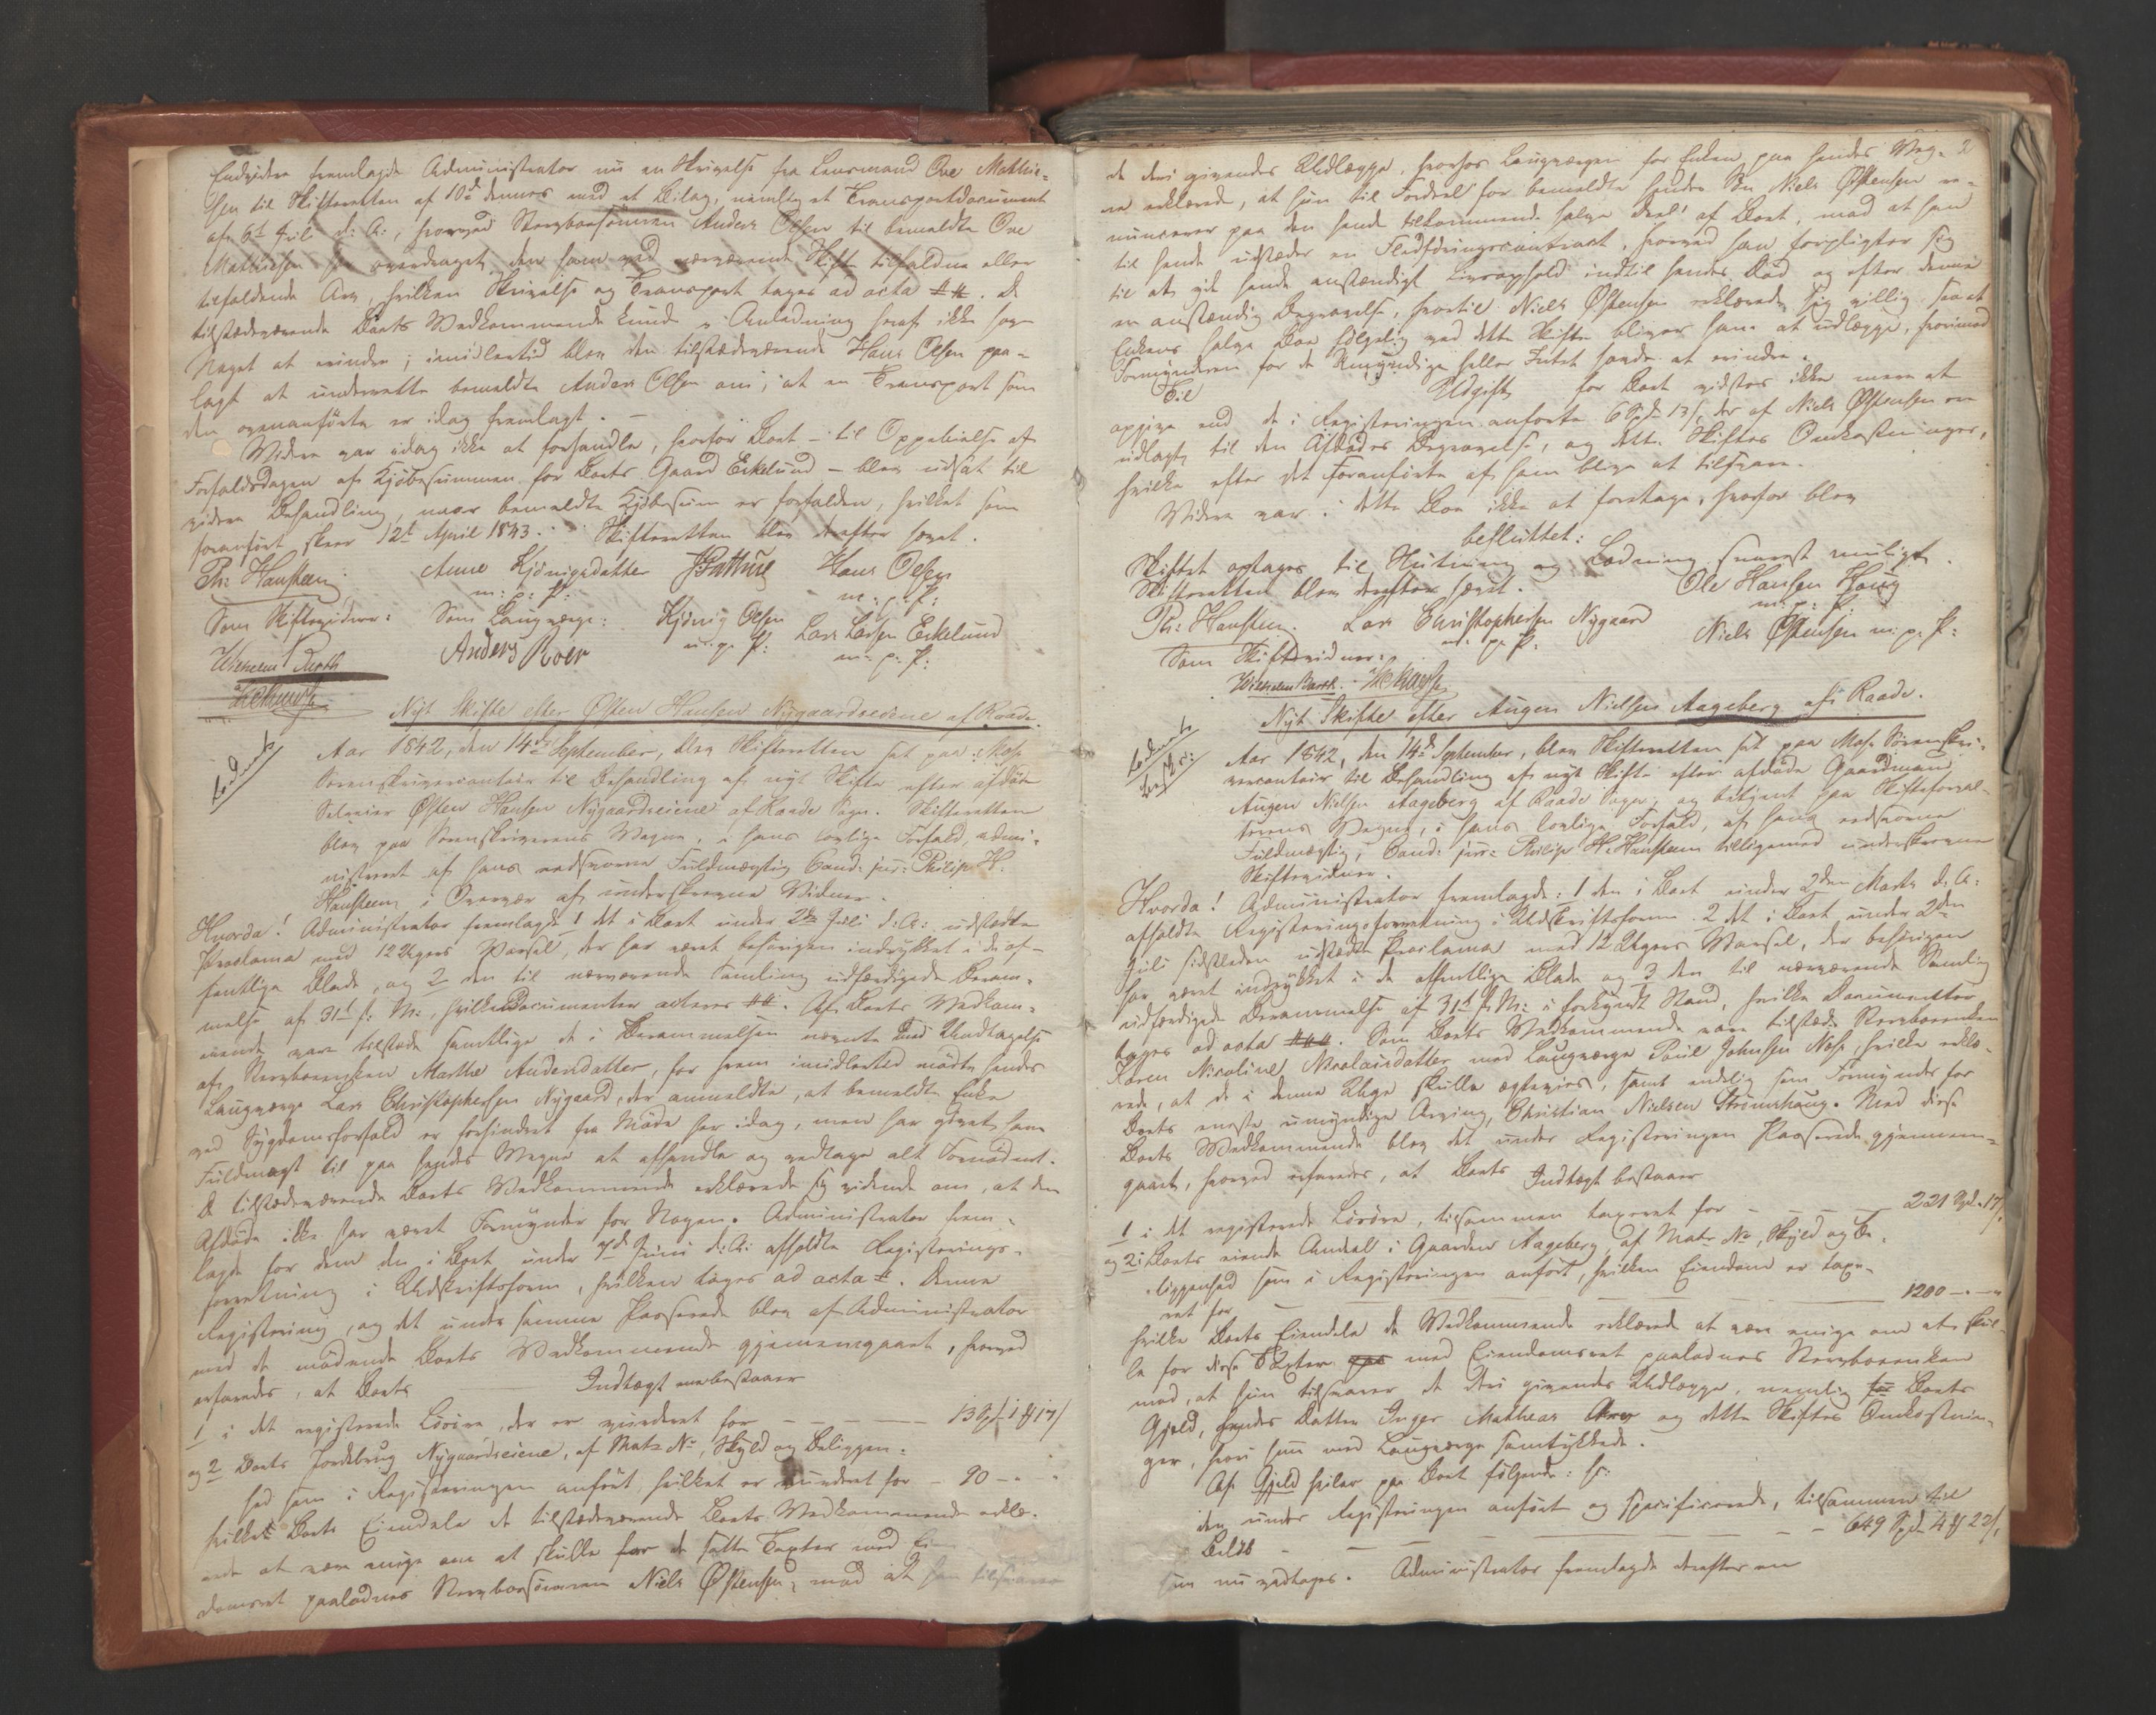 Endvidere fremlagde Administrator nu en Skrivelse fra Lensmand Ove Mathie-
sen til Skifteretten af 10de dennes med et Bilag, nemlig et Transportdocument
af 6te Juli d: A:, hvorved Stervboesønnen Anders Olsen til bemeldte Ove
Mathiesen har overdraget den ham ved nærværende Skifte tilfaldne eller
tilfaldende Arv, hvilken Skrivelse og Transport tages ad acta ##. De
tilstædeværende Boets Vedkommende kunde i Anledning heraf ikke have
Noget at erindre; imidlertid blev den tilstædeværende Hans Olsen paa-
lagt at underrette bemeldte Anders Olsen om, at en Transport som
den ovenanførte er idag fremlagt. -
Videre var idag ikke at forhandle, hvorfor Boet - til Oppebielse af
Forfaldsdagen af Kjøbesummen for Boets Gaard Eskelund - blev udsat til
videre Behandling, naar bemeldte Kjøbesum er forfalden, hvilket som
foranført skeer 12te April 1843. Skifteretten blev derefter hævet.
Ph: Hansteen. Anne Kjønigsdatter Hans Olsen
m: p: P: m: p: P:
Som Skiftevidner: Som Laugværge: Kjønig Olsen Lars Larsen Eskelund
Wilhelm Barth Anders Roer m: p: P: m: p: P:
Nyt Skifte efter Østen Hansen Nygaardseiene af Raade.
Aar 1842, den 14de September, blev Skifteretten sat paa Moss
Sorenskrivercontoir til Behandling af nyt Skifte efter afdøde
Selveier Østen Hansen Nygaardseiene af Raade Sogn. Skifteretten
blev paa Sorenskriverens Vegne, i hans lovlige Forfald, admi-
nistreret af hans edsvorne Fuldmægtig Cand: jur: Philip H.
Hansteen, i Overvær af underskrevne Vidner.
Hvorda! Administrator fremlagde 1 det i Boet under 2den Juli d: A: udstædte
Proclama med 12 Ugers Varsel, der har været behørigen indrykket i de of-
fentlige Blade, og 2 den til nærværende Samling udfærdigede Beram-
melse af 31te f: M:, hvilke Documenter acteres ##. Af Boets Vedkom-
mende vare tilstæde samtlige de i Berammelsen nævnte med Undtagelse
af Stervboeenken Marthe Andersdatter, for hvem imidlertid mødte hendes
Laugværge Lars Christophersen Nygaard, der anmeldte, at bemeldte Enke
ved Sygdomsforfald er forhindret fra Møde her idag, men har givet ham
Fuldmagt til paa hendes Vegne at afhandle og vedtage alt Fornødent.
De tilstædeværende Boets Vedkommende erklærede sig vidende om, at den
Afdøde ikke har været Formynder for Nogen. Administrator frem-
lagde for dem den i Boet under 7de Juni d: A: afholdte Registerings-
forretning i Udskriftsform, hvilken tages ad acta #. Denne
Registering, og det under samme Passerede blev af Administrator
med de mødende Boets Vedkommende gjennemgaaet, hvorved
erfaredes, at Boets Indtægt bestaaer
1 i det registerede Løsøre, der er vurderet for - - - - 13 Spd 1 # 17 s
og 2 Boets Jordebrug Nygaardseiene, af Matr No, Skyld og Beliggen-
hed som i Registeringen anført, hvilket er vurderet for - 90 - " - "
hvilke Boets Eiendele de tilstædeværende Boets Vedkommende erklæ-
rede at være enige om at skulle for de satte Taxter med Ei-
domsret paalodnes Stervboesønnen Niels Østensen, mod at han tilsvarer
2
de deri givendes Udlægge, hvorhos Laugværgen for Enken paa hendes Veg-
ne erklærede, at hun til Fordeel for bemeldte hendes Søn Niels Østensen re-
nuncerer paa den hende tilkommende halve Deel af Boet, mod at han
til hende udstæder en Fledføringscontract, hvorved han forpligter sig
til at give hende anstændigt Livsophold indtil hendes Død og efter denne
en anstændig Begravelse, hvortil Niels Østensen erklærede sig villig saa at
Enkens halve Boe følgelig ved dette Skifte bliver ham at udlægge, hvorimod
Formynderen for de Umyndige heller Intet havde at erindre.
Til Udgift for Boet vidstes ikke mere at
opgive end de i Registeringen anførte 6 Spd 13 s, der af Niels Østensen ere
udlagte til den Afdødes Begravelse, og dette Skiftes Omkostninger,
hvilke efter det Foranførte af ham blive at tilsvare.
Videre var i dette Boe ikke at foretage, hvorfor blev
besluttet:
Skiftet optages til Slutning og Lodning snarest muligt.
Skifteretten blev derefter hævet. Ole Hansen Haug
Ph: Hansteen. Lars Christophersen Nygaard m: p: P:
Som Skiftevidner: m: p: P: Niels Østensen m: p: P:
Wilhelm Barth.
Nyt Skifte efter Augen Nielsen Aageberg af Raade.
Aar 1842, den 14de September, blev Skifteretten sat paa Moss Sorenskri-
vercontoir til Behandling af nyt Skifte efter afdøde Gaardmand
Augen Nielsen Aageberg af Raade Sogn, og betjent paa Skifteforval-
terens Vegne, i hans lovlige Forfald, af hans edsvorne
Fuldmægtig, Cand: jur: Philip H. Hansteen tilligemed underskrevne
Skiftevidner.
Hvorda! Administrator fremlagde: 1 den i Boet under 2den Marts d: A:
afholdte Registeringsforretning i Udskriftsform. 2 det i Boet under 2den
Juli sidstleden udstædte Proclama med 12 Ugers Varsel, der behørigen
har været indrykket i de offentlige Blade og 3 den til nærværende Samling
udfærdigede Berammelse af 31te f: M: i forkyndt Stand, hvilke Documenter
tages ad acta ###. Som Boets Vedkommende vare tilstæde Stervboeenken
Karen Nicoline Nicolaisdatter med Laugværge Poul Johnsen Næs, hvilke erklæ-
rede, at de i denne Uge skulle ægtevies, samt endelig som Formynder for
Boets eneste umyndige Arving, Christian Nielsen Strømshaug. Med disse
Boets Vedkommende blev det under Registeringen Passerede gjennem-
gaaet, hvorved erfaredes, at Boets Indtægt bestaaer
1 i det registerede Løsøre, tilsammen taxeret for - - - - 221 Spd. 17 s.
og 2 i Boets eiende Andeel i Gaarden Aageberg, af Matr No, Skyld og Be-
liggenhed som i Registeringen anført, hvilken Eiendom er taxe-
ret for 1200 - " - "
hvilke Boets Eiendele de Vedkommende erklærede at være enige om at skul-
le for disse Taxter med Eiendomsret paalodnes Stervboeenken
mod, at hun tilsvarer de deri givendes Udlægge, nemlig Boets
Gjeld, hendes Datter Inger Matheas Arv og dette Skiftes Omkostnin-
ger, hvori hun med Laugværge samtykkede.
Af Gjeld hviler paa Boet følgende: h:
den under Registeringen anført og specificerede, tilsammen til
Beløb - - - 649 Spd 4 # 22 s.
som nu vedtages. Administrator fremlagde derefter en